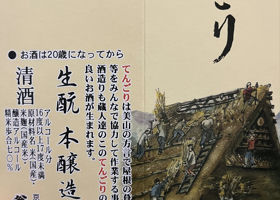 ごり
てんごりは美山の方言で屋根の葺
等をみんなで協力して作業する事
酒造りも蔵人達のこのてんごりの
良いお酒が生まれます。
●お酒は20歳になってから
生酛 本醸造
清酒
アルコール分
16度以上17度未満
原材料名/米(国産)、
米麹(国産米)、
醸造アルコール
精米歩合七〇%
京